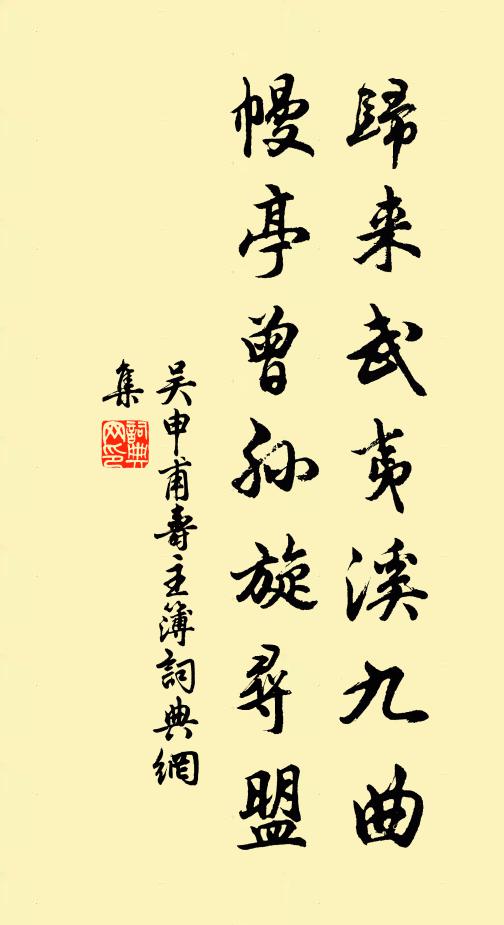 歸来武夷溪九曲
幔亭曾孙旋尋盟
吴申甫壽主簿詞典網
集
詞典網印